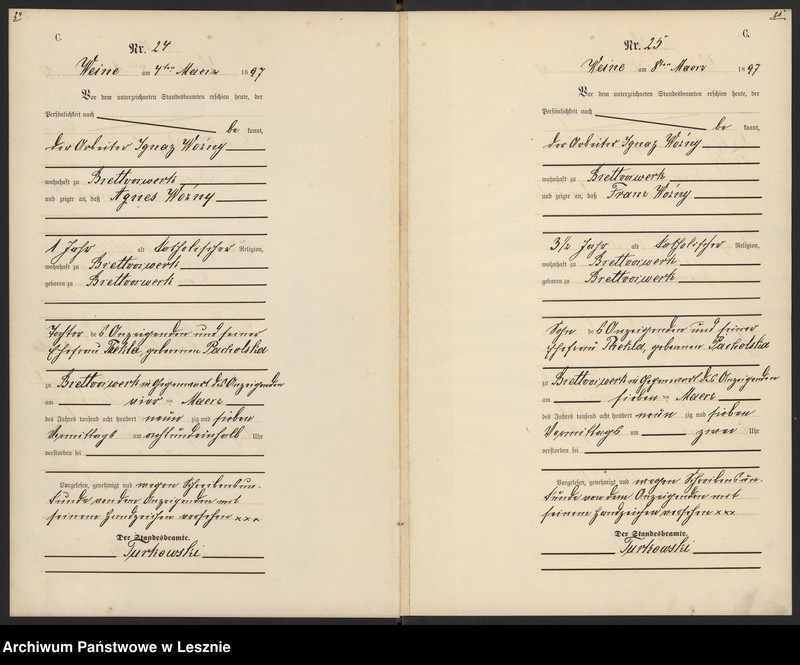 24
C.
Nr. 24
Weine am 4ten Maerz 1897
Vor dem unterzeichneten Standesbeamten erschien heute, der
Persönlichkeit nach
be kannt,
der Arbeiter Ignaz Woźny
wohnhaft zu Brettvorwerk
und zeigte an, daß Agnes Woźny
1 Jahr alt katholischer Religion,
wohnhaft zu Brettvorwerk
geboren zu Brettvorwerk
Tochter des Anzeigenden und seiner
Ehefrau Thekla, geborenen Pacholska
zu Brettvorwerk in Gegenwart des Anzeigenden
am vier ten Maerz
des Jahres tausend acht hundert neun zig und sieben
Vormittags um achtundeinhalb Uhr
verstorben sei
Vorgelesen, genehmigt und wegen Schreibensun-
kunde von dem Anzeigenden mit
seinem Handzeichen versehen xxx
Der Standesbeamte.
Turkowski
25
C.
Nr. 25
Weine am 8ten Maerz 1897
Vor dem unterzeichneten Standesbeamten erschien heute, der
Persönlichkeit nach
be kannt,
der Arbeiter Ignaz Woźny
wohnhaft zu Brettvorwerk
und zeigte an, daß Franz Woźny
3½ Jahr alt katholischer Religion,
wohnhaft zu Brettvorwerk
geboren zu Brettvorwerk
Sohn des Anzeigenden und seiner
Ehefrau Thekla, geborenen Pacholska
zu Brettvorwerk in Gegenwart des Anzeigenden
am sieben ten Maerz
des Jahres tausend acht hundert neun zig und sieben
Vormittags um zwei Uhr
verstorben sei
Vorgelesen, genehmigt und wegen Schreibensun-
kunde von dem Anzeigenden mit
seinem Handzeichen versehen xxx
Der Standesbeamte.
Turkowski
Archiwum Państwowe w Lesznie